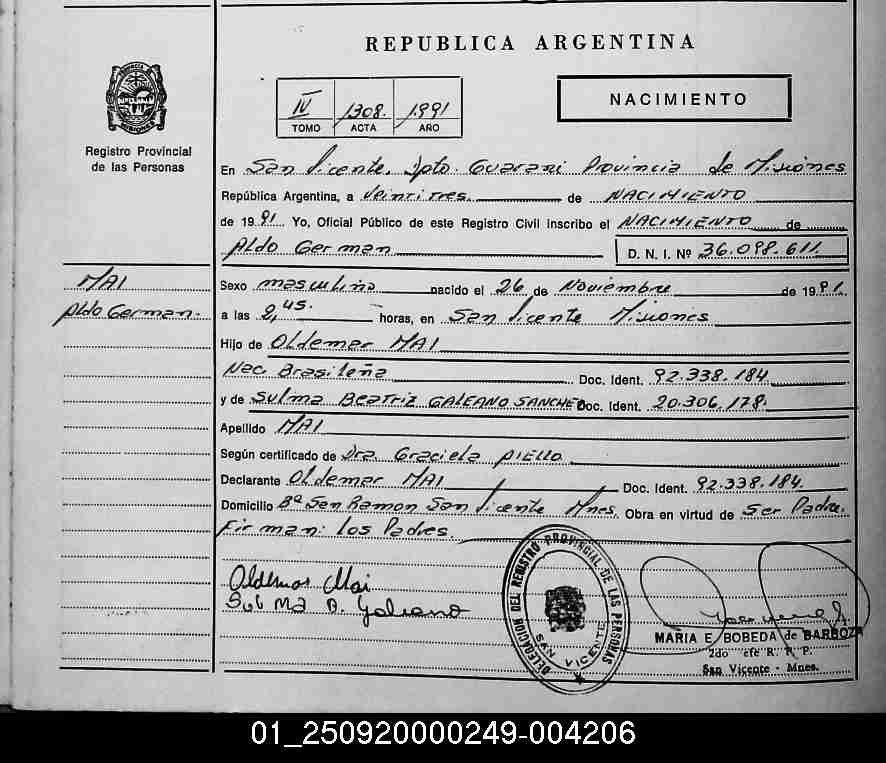 REPUBLICA ARGENTINA
NACIMIENTO
IV 1308. 1.991
TOMO ACTA AÑO
Registro Provincial
de las Personas
En San Vicente, Dpto. Guarani Provincia de Misiones
República Argentina, a Veintitres de NACIMIENTO
de 1991 Yo, Oficial Público de este Registro Civil inscribo el NACIMIENTO de
Aldo German D. N. I. Nº 36.098.611.
MAI
Aldo German.
Sexo masculino nacido el 26 de Noviembre de 1991.
a las 2,45. horas, en San Vicente Misiones
Hijo de Oldemar MAI
Nac. Brasileña Doc. Ident. 92.338.184
y de Sulma Beatriz GALEANO SANCHEZ Doc. Ident. 20.306.178.
Apellido MAI
Según certificado de Dra. Graciela AIELLO
Declarante Oldemar MAI Doc. Ident. 92.338.184.
Domicilio Bº San Ramon San Vicente Mnes. Obra en virtud de Ser Padre.
Firman: los Padres.
Oldemar Mai
Sulma B. Galeano
DELEGACION DEL REGISTRO PROVINCIAL DE LAS PERSONAS
SAN VICENTE
MARIA E. BOBEDA de BARBOZA
2do R. P.
San Vicente - Mnes.
01_250920000249-004206